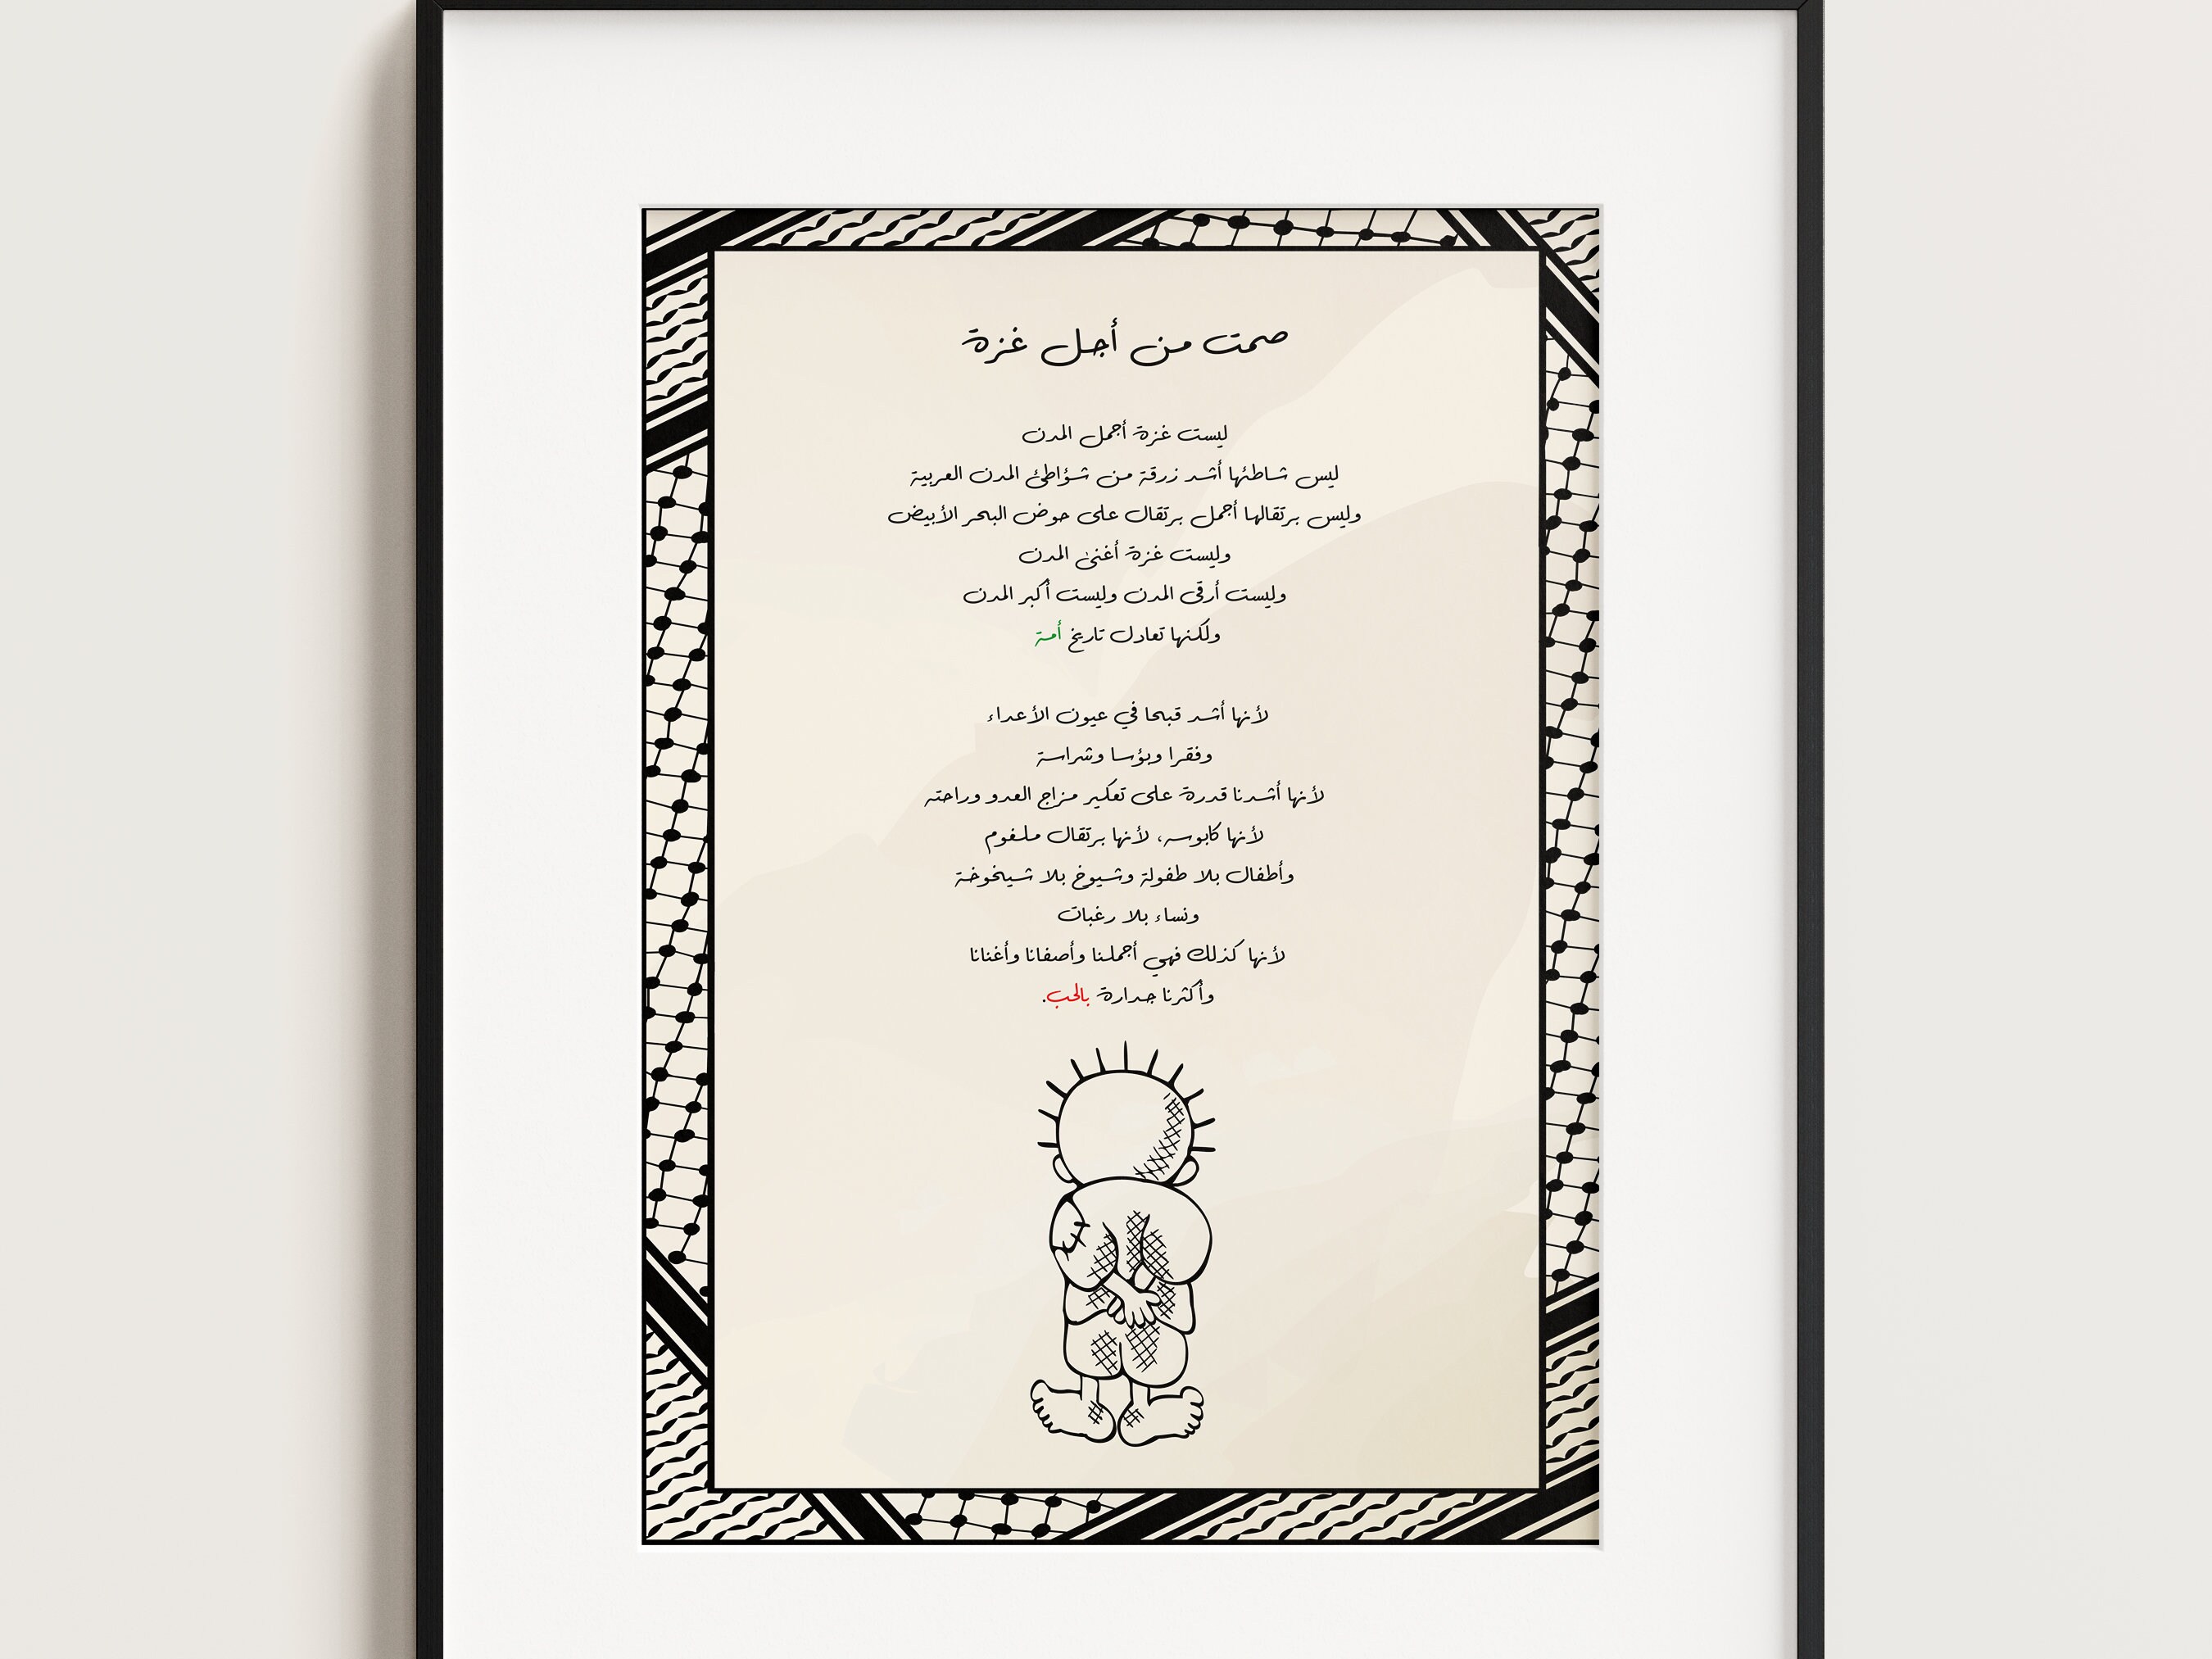 صمت من أجل غزة
ليست غزة أجمل المدن
ليس شاطئها أشد زرقة من شؤاطئ المدن العربية
وليس برتقالها أجمل برتقال على حوض البحر الأبيض
وليست غزة أغنى المدن
وليست أرقى المدن وليست أكبر المدن
ولكنها تعادل تاريخ أمة
لأنها أشد قبحا في عيون الأعداء
وفقرا وبؤسا وشراسة
لأنها أشدنا قدرة على تعكير مزاج العدو وراحته
لأنها كابوسه، لأنها برتقال ملغوم
وأطفال بلا طفولة وشيوخ بلا شيخوخة
ونساء بلا رغبات
لأنها كذلك فهي أجملنا وأصفانا وأغنانا
وأكثرنا جدارة بالحب.